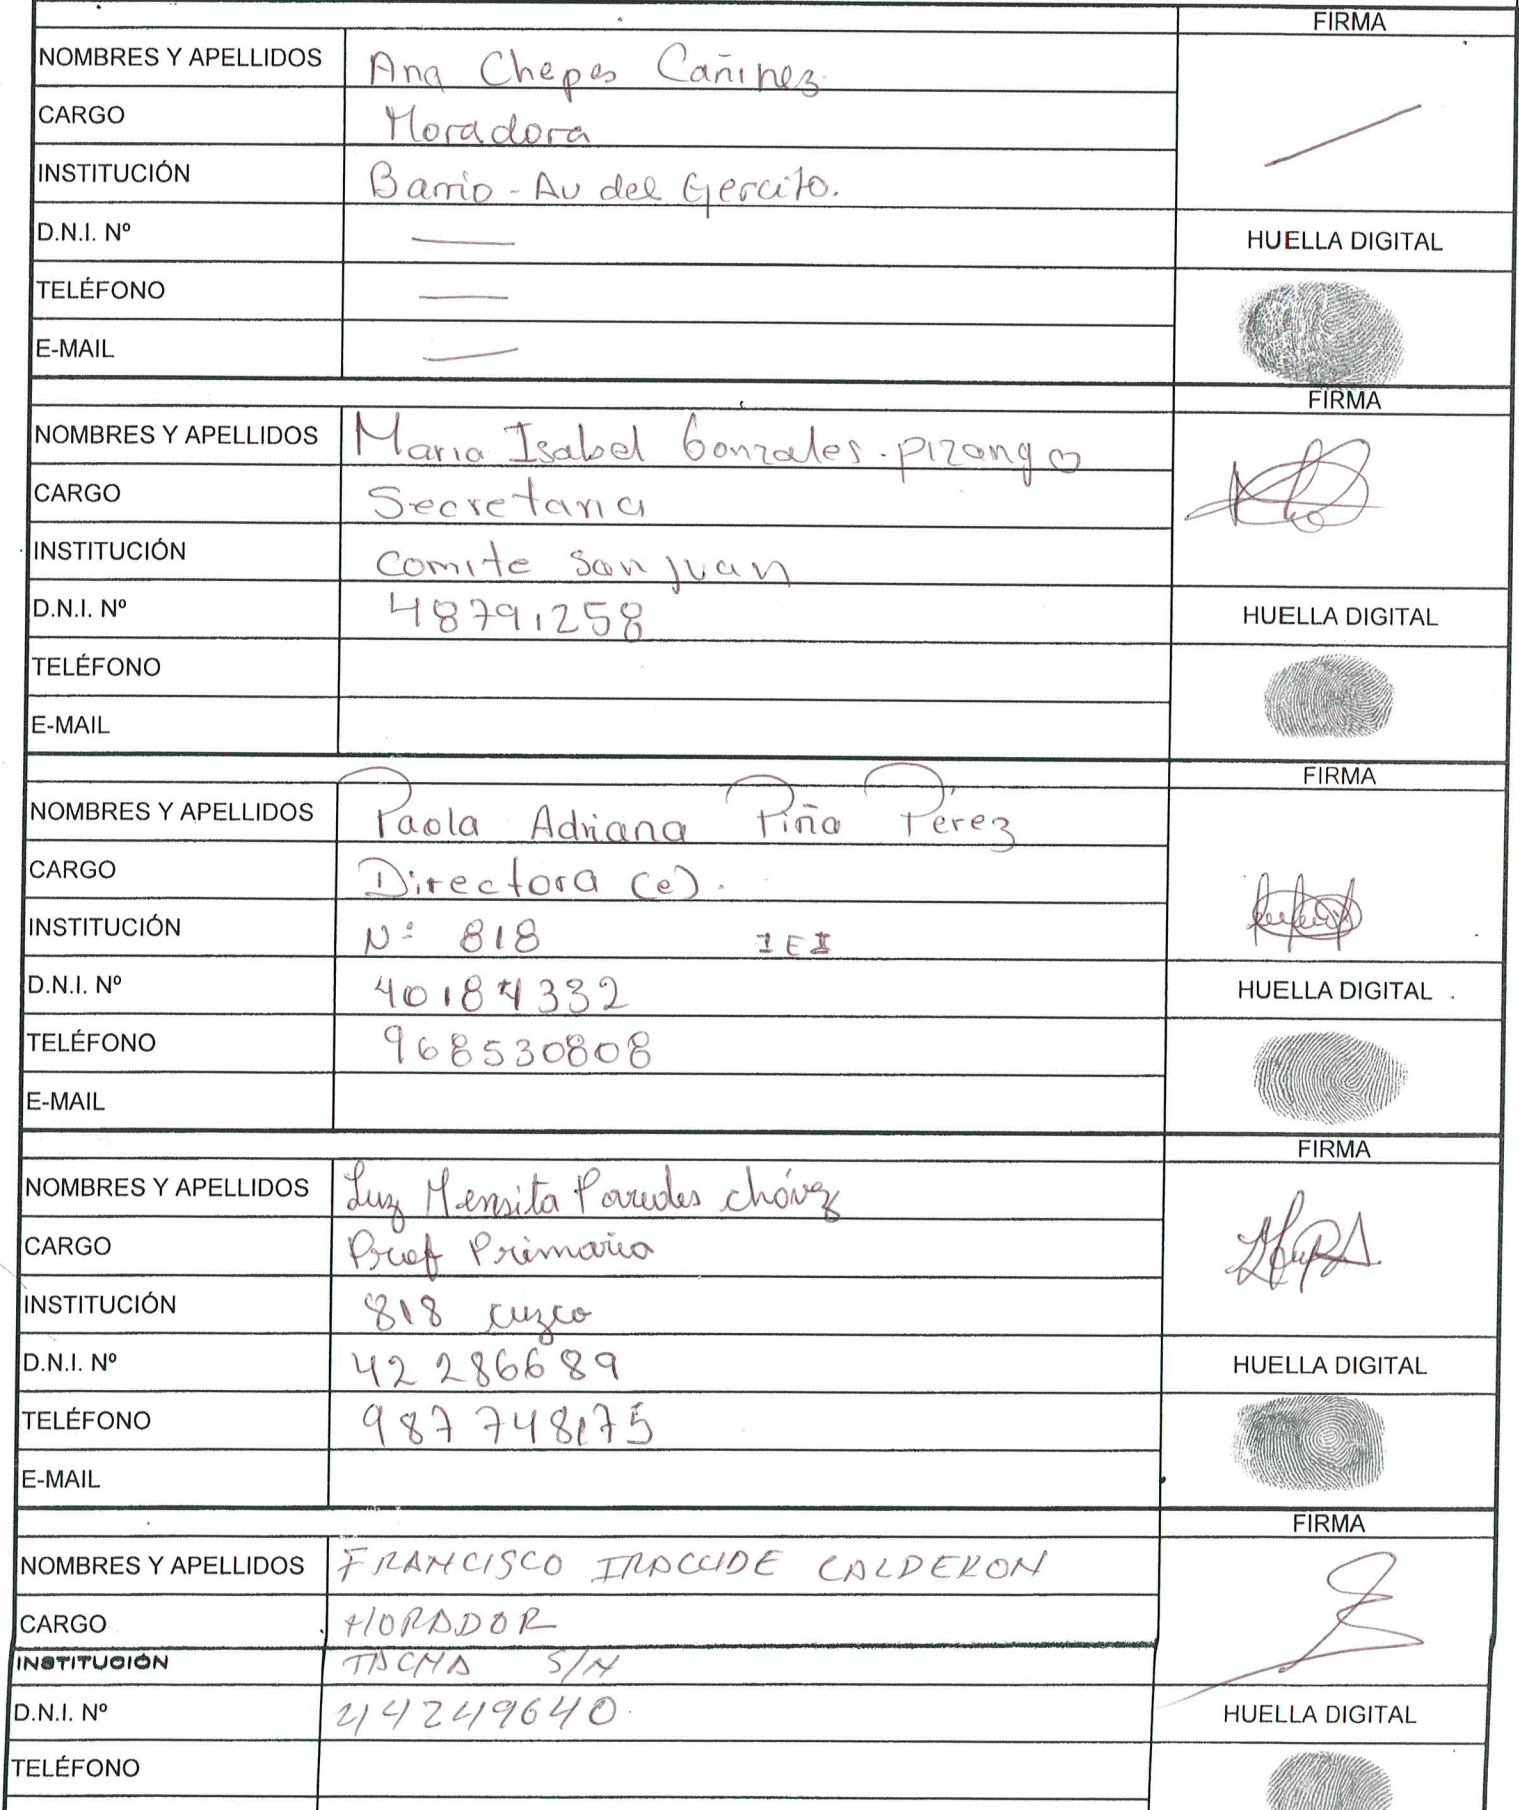 FIRMA
NOMBRES Y APELLIDOS Ana Chepes Cañinez
CARGO Moradora
INSTITUCIÓN Barrio - Av del Ejercito.
D.N.I. Nº — HUELLA DIGITAL
TELÉFONO —
E-MAIL —
FIRMA
NOMBRES Y APELLIDOS Maria Isabel Gonzales. pizango
CARGO Secretaria
INSTITUCIÓN comite San juan
D.N.I. Nº 48791258 HUELLA DIGITAL
TELÉFONO
E-MAIL
FIRMA
NOMBRES Y APELLIDOS Paola Adriana Piña Pérez
CARGO Directora (e).
INSTITUCIÓN Nº 818 IEI
D.N.I. Nº 40184332 HUELLA DIGITAL
TELÉFONO 968530808
E-MAIL
FIRMA
NOMBRES Y APELLIDOS Luz Mensita Paredes chávez
CARGO Prof Primaria
INSTITUCIÓN 818 cuzco
D.N.I. Nº 42 286689 HUELLA DIGITAL
TELÉFONO 987 748175
E-MAIL
FIRMA
NOMBRES Y APELLIDOS FRANCISCO CALDERON
CARGO MORADOR
INSTITUCIÓN TACNA S/N
D.N.I. Nº 44249640. HUELLA DIGITAL
TELÉFONO